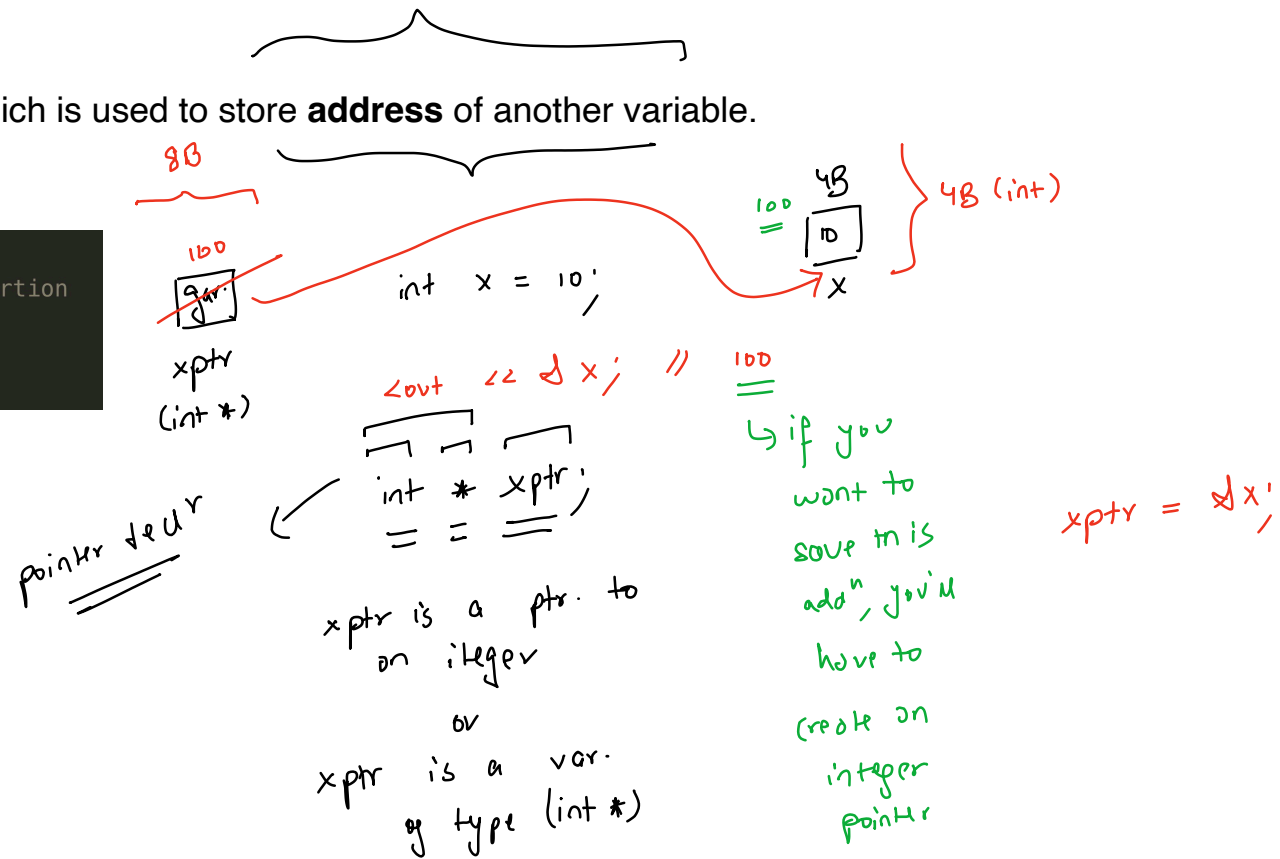 ich is used to store address of another variable.
8B
100
gar.
xptr
(int *)
rtion
int x = 10;
100
4B
10
x
4B (int)
cout << &x; // 100
int * xptr;
pointer decl^r
xptr is a ptr. to
an iteger
or
xptr is a var.
of type (int *)
↳ if you
want to
save this
add^n, you'll
have to
create an
integer
pointer
xptr = &x;